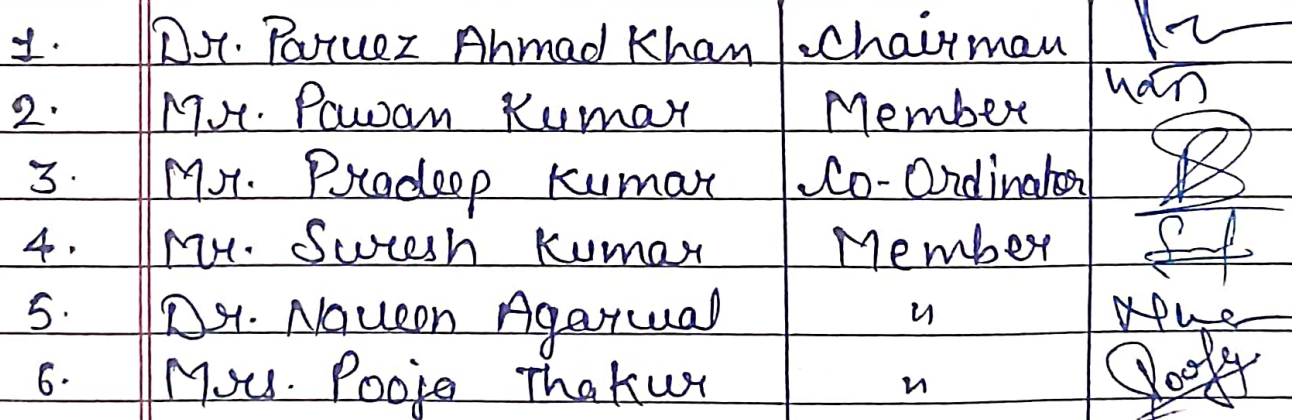 1. Dr. Parvez Ahmad Khan Chairman
2. Mr. Pawan Kumar Member
3. Mr. Pradeep Kumar Co-Ordinator
4. Mr. Suresh Kumar Member
5. Dr. Naveen Agarwal "
6. Mrs. Pooja Thakur "